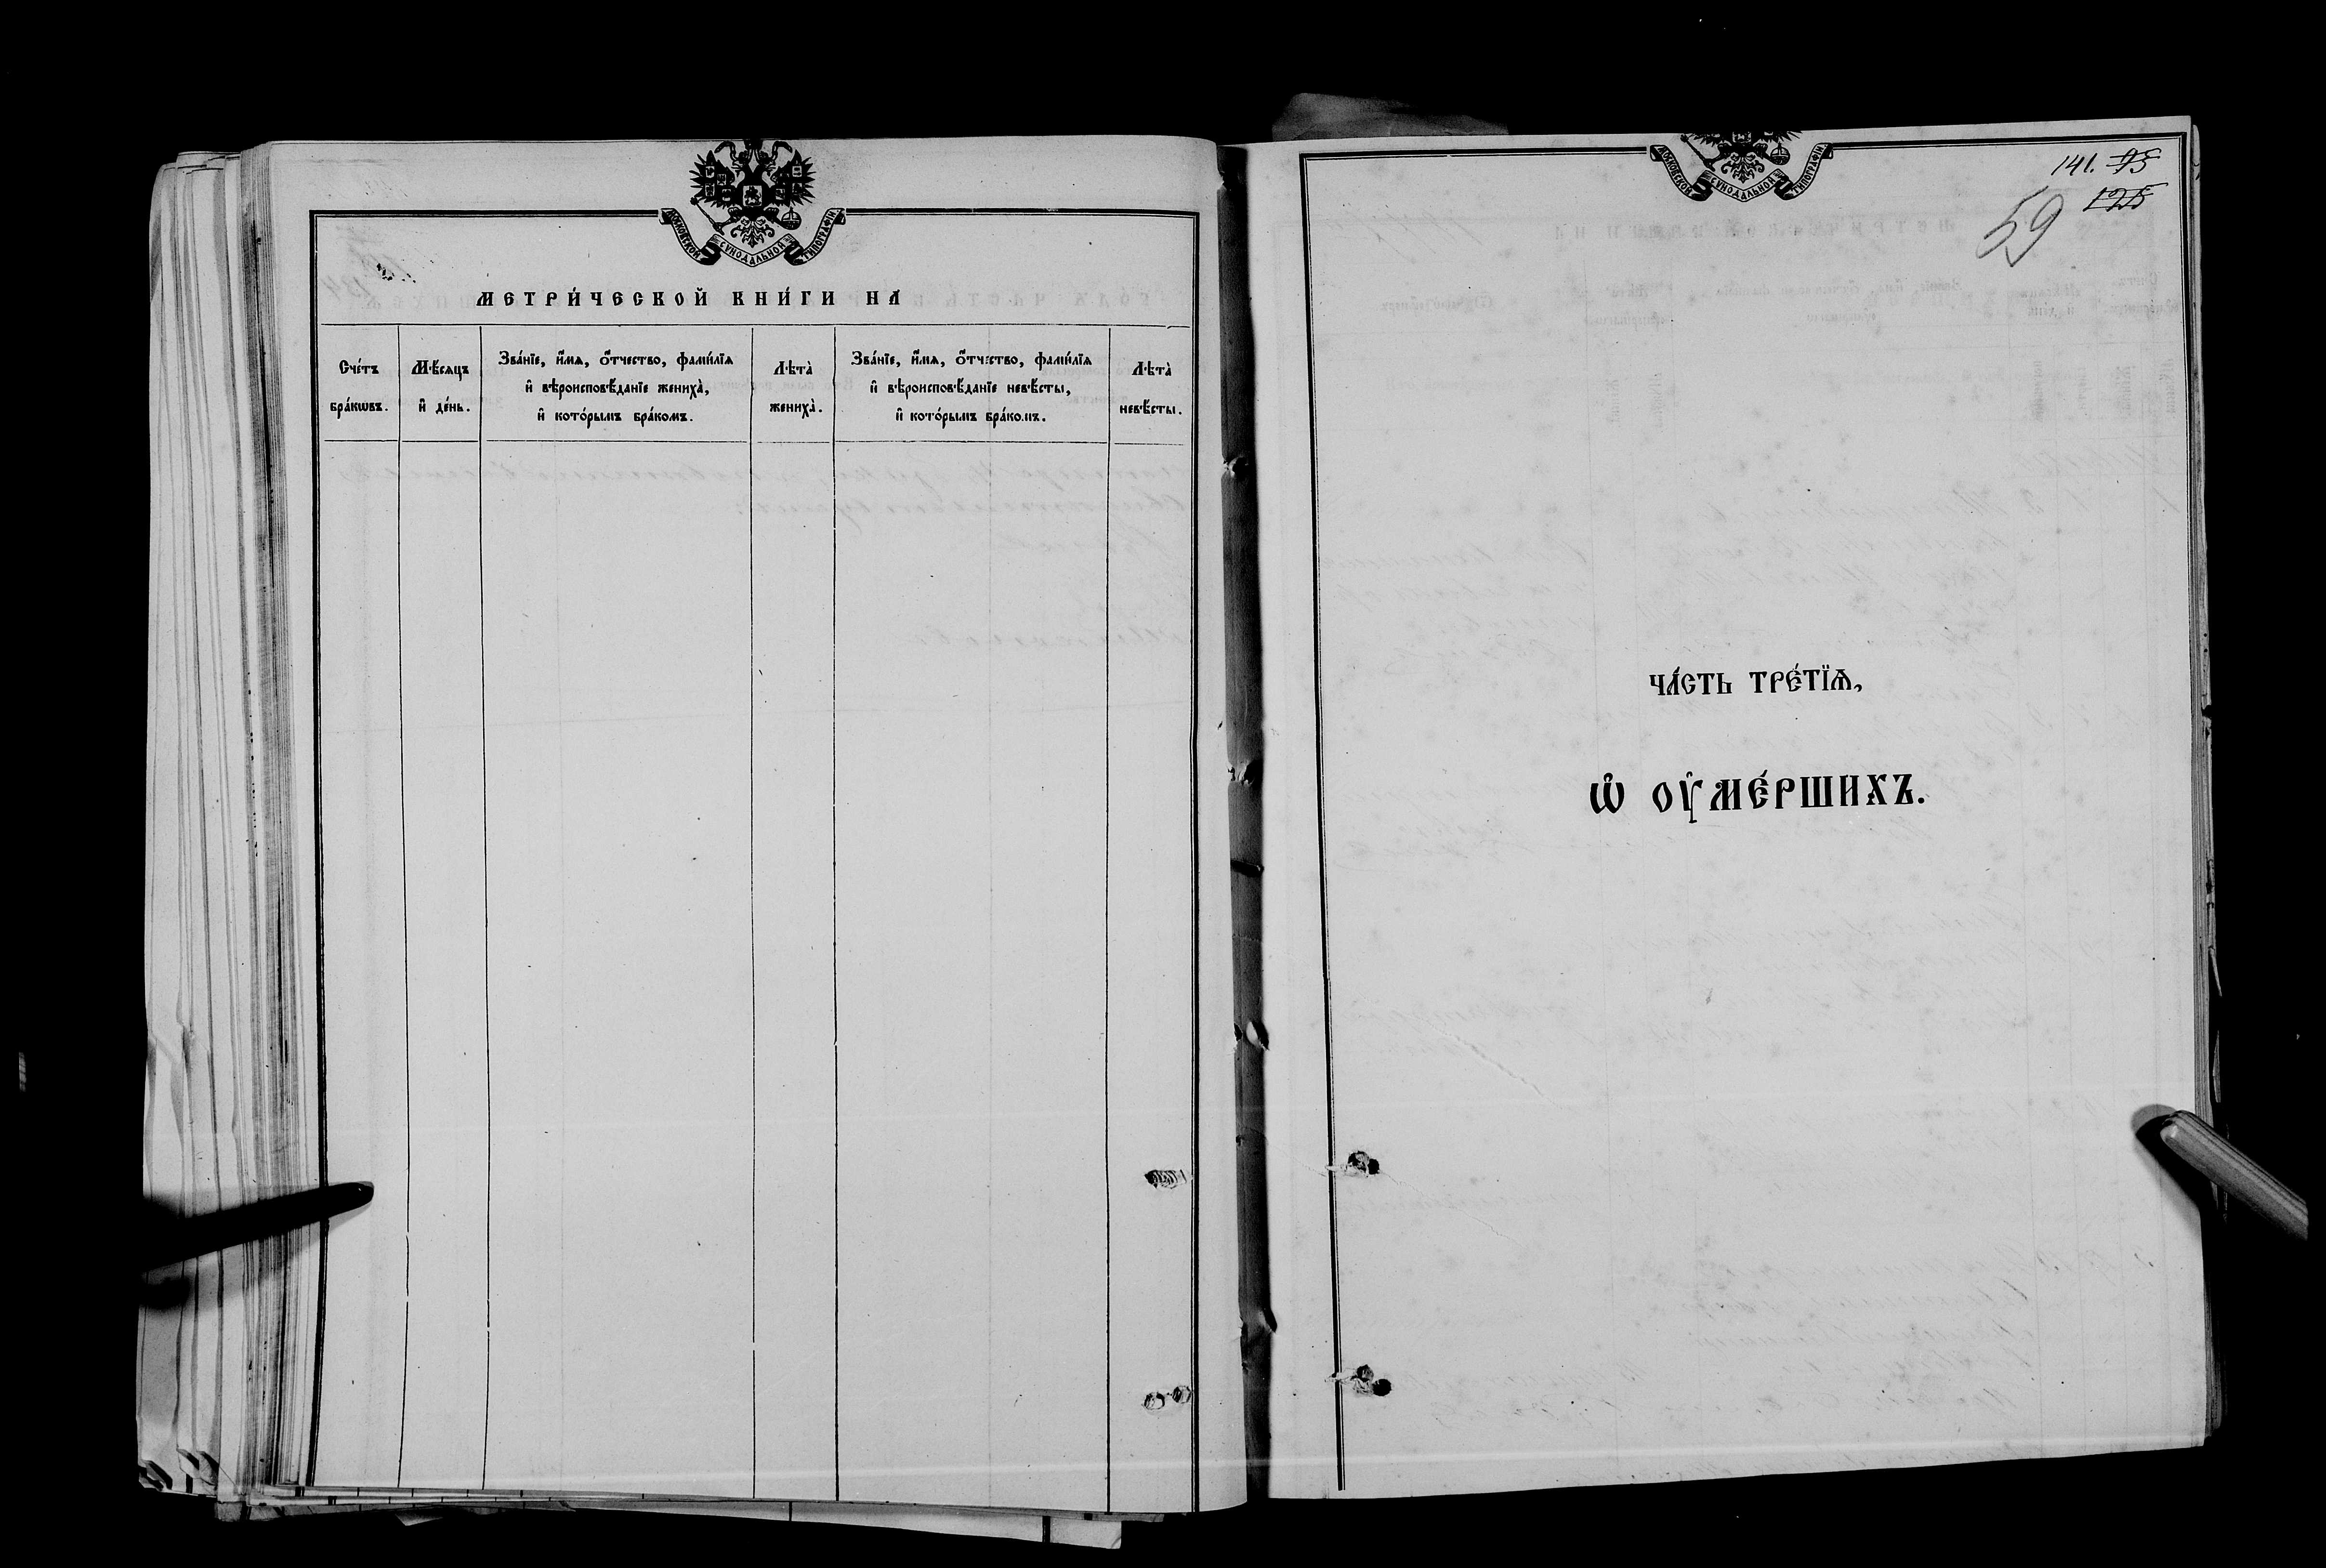 МОСКОВСКОЙ СѴНОДАЛЬНОЙ ТИПОГРАФІИ
МЕТРИ́ЧЕСКОЙ КНИ́ГИ НА̀
Сче́тъ
бра́кѡвъ.
Мѣ́сяцъ
и҆ де́нь.
Зва́нїе, и҆́мя, ѻ҆́тчество, фами́лїя
и҆ вѣроисповѣ́данїе жениха̀,
и҆ кото́рымъ бра́комъ.
Лѣта̀
жениха̀.
Зва́нїе, и҆́мя, ѻ҆́тчество, фами́лїя
и҆ вѣроисповѣ́данїе невѣ́сты,
и҆ кото́рымъ бра́комъ.
Лѣта̀
невѣ́сты.
МОСКОВСКОЙ СѴНОДАЛЬНОЙ ТИПОГРАФІИ
141. 95
125
59
ЧА́СТЬ ТРЕ́ТЇѦ,
Ѡ҆ ОУ҆МЕ́РШИХЪ.